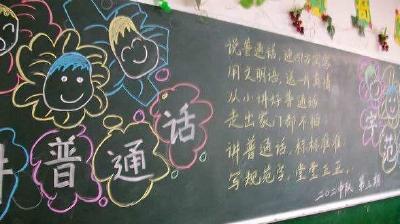 讲普通话
说普通话，迎四方宾客
用文明语，送一片真情
从小讲好普通话
走出家门都不怕
讲普通话，标标准准
写规范字，堂堂正正。
二〇二中队 第三期
字
范